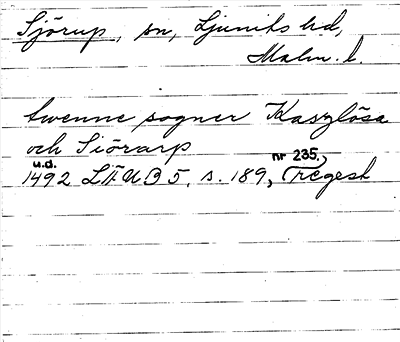 Sjörup, sn, Ljunits hd,
Malm. l.
twenne sogner Kaszlösa
och Siörarp
u.d. nr 235.
1492 LÄUB 5, s. 189, (regest